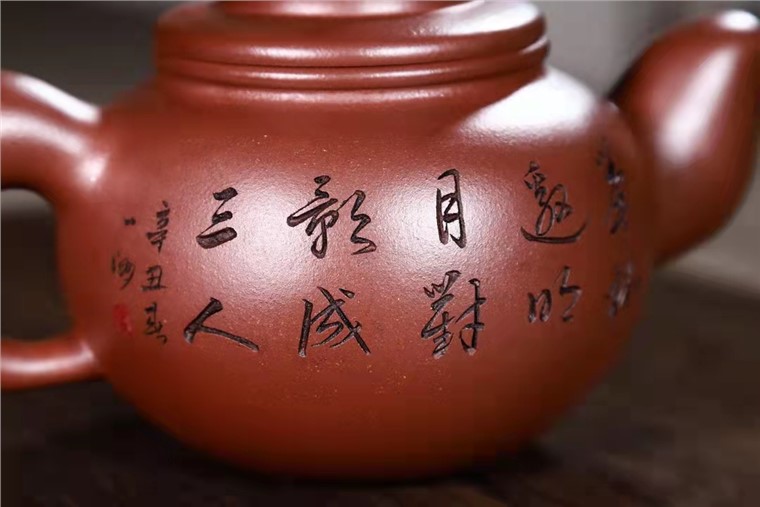 邀明
月對
影成
三人
辛丑春